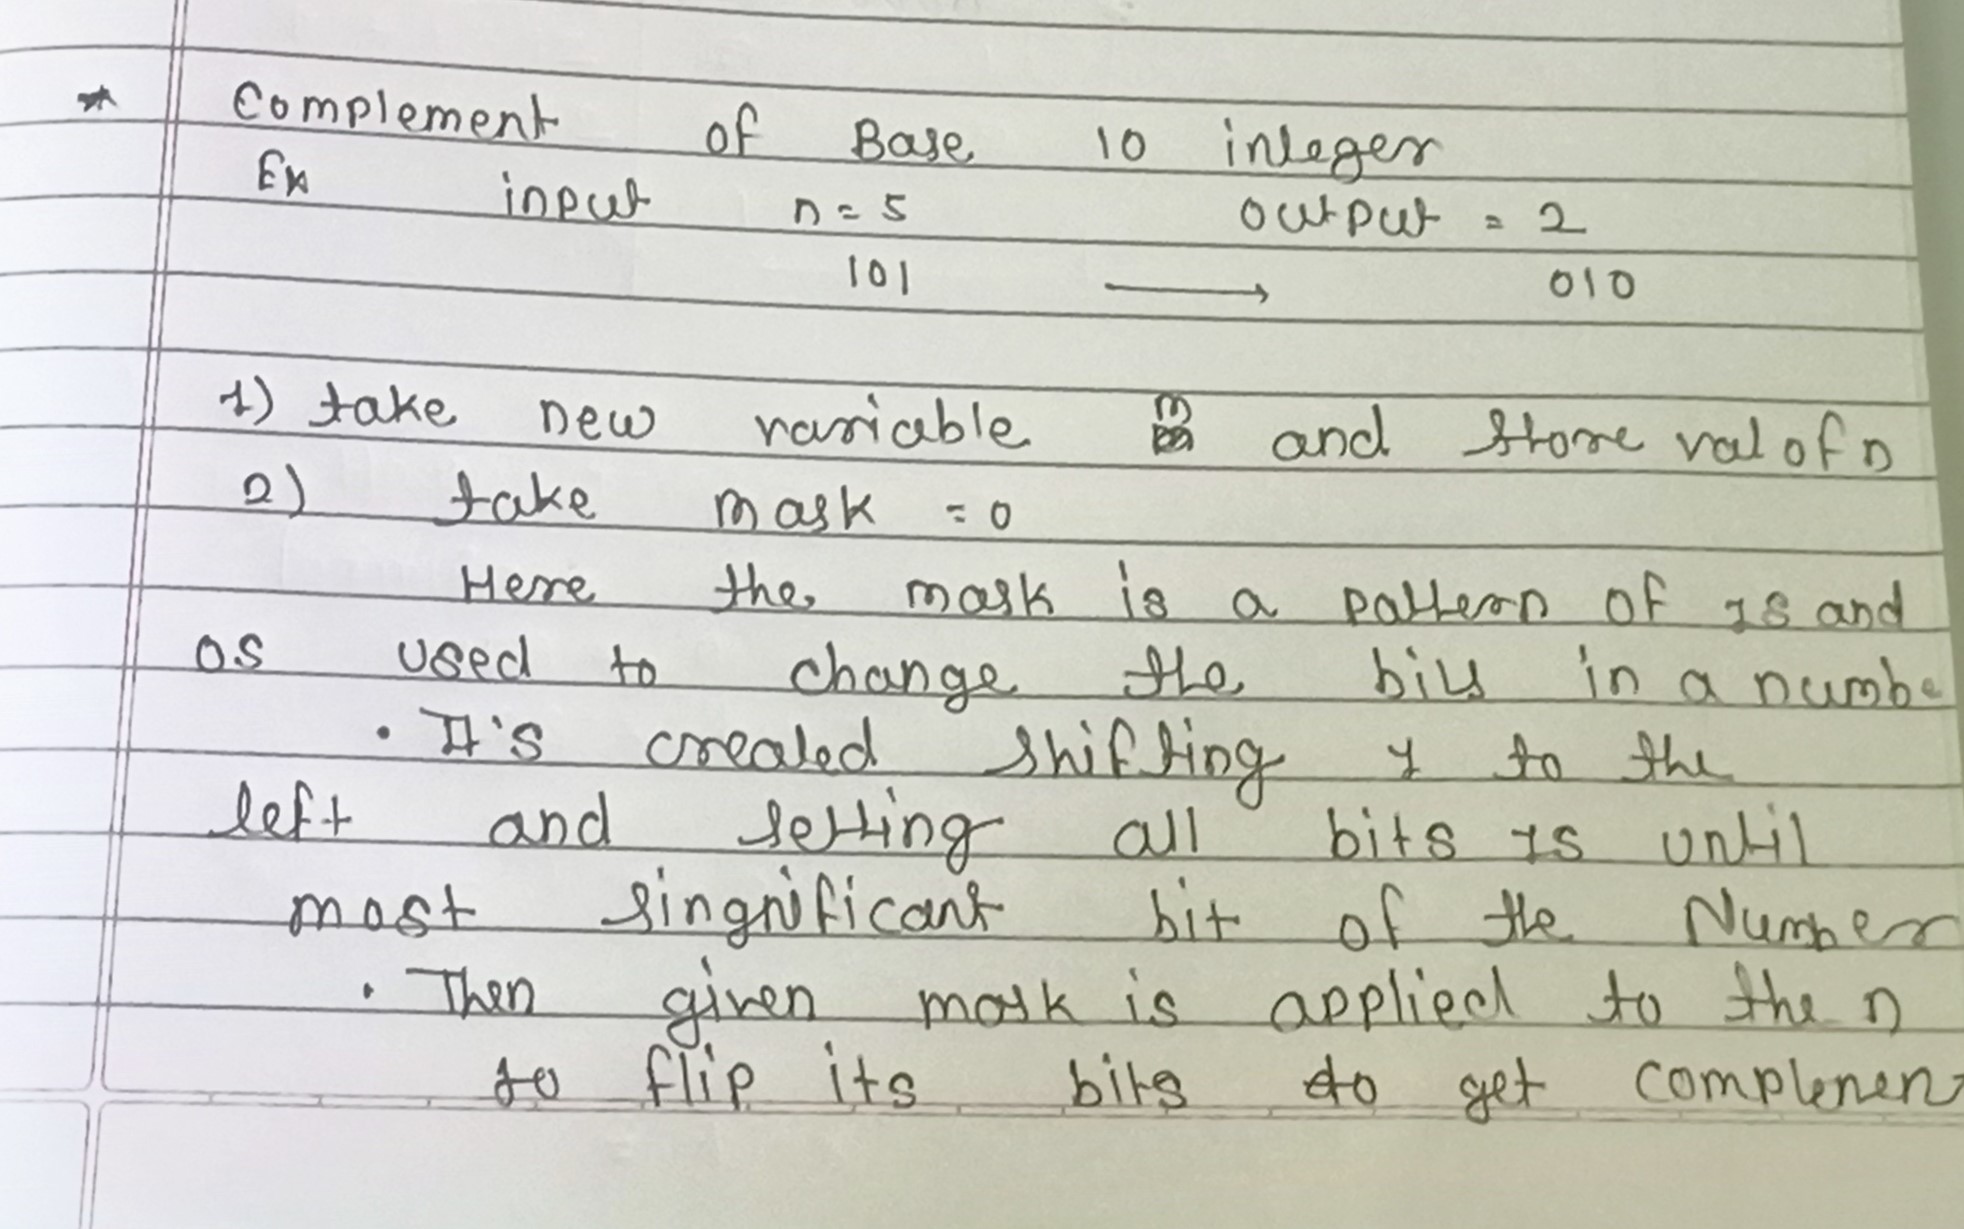 * Complement of Base 10 integer
Ex input n = 5 output = 2
101 → 010
1) take new variable m and store val of n
2) take mask = 0
Here the mask is a pattern of 1s and
0s used to change the bits in a numbe
• It's created shifting 1 to the
left and setting all bits 1s until
most singnificant bit of the Number
• Then given mask is applied to the n
to flip its bits to get complemen